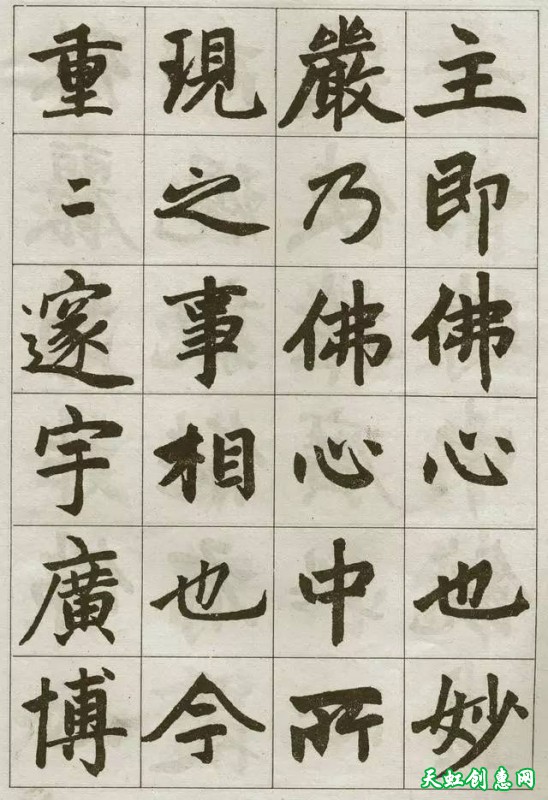 主即佛心也妙
嚴乃佛心中所
現之事相也今
重〻邃宇廣博
天虹创惠网